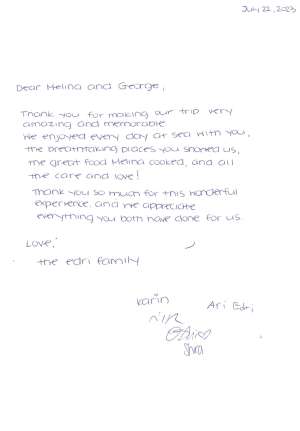 July 22, 2023
Dear Melina and George,
Thank you for making our trip very
amazing and memorable
We enjoyed every day at sea with you,
the breathtaking places you showed us,
the great food Melina cooked, and all
the care and love!
Thank you so much for this wonderful
experience, and we appreciate
everything you both have done for us.
Love,
the edri family
Karin
Ari Edri
Shira